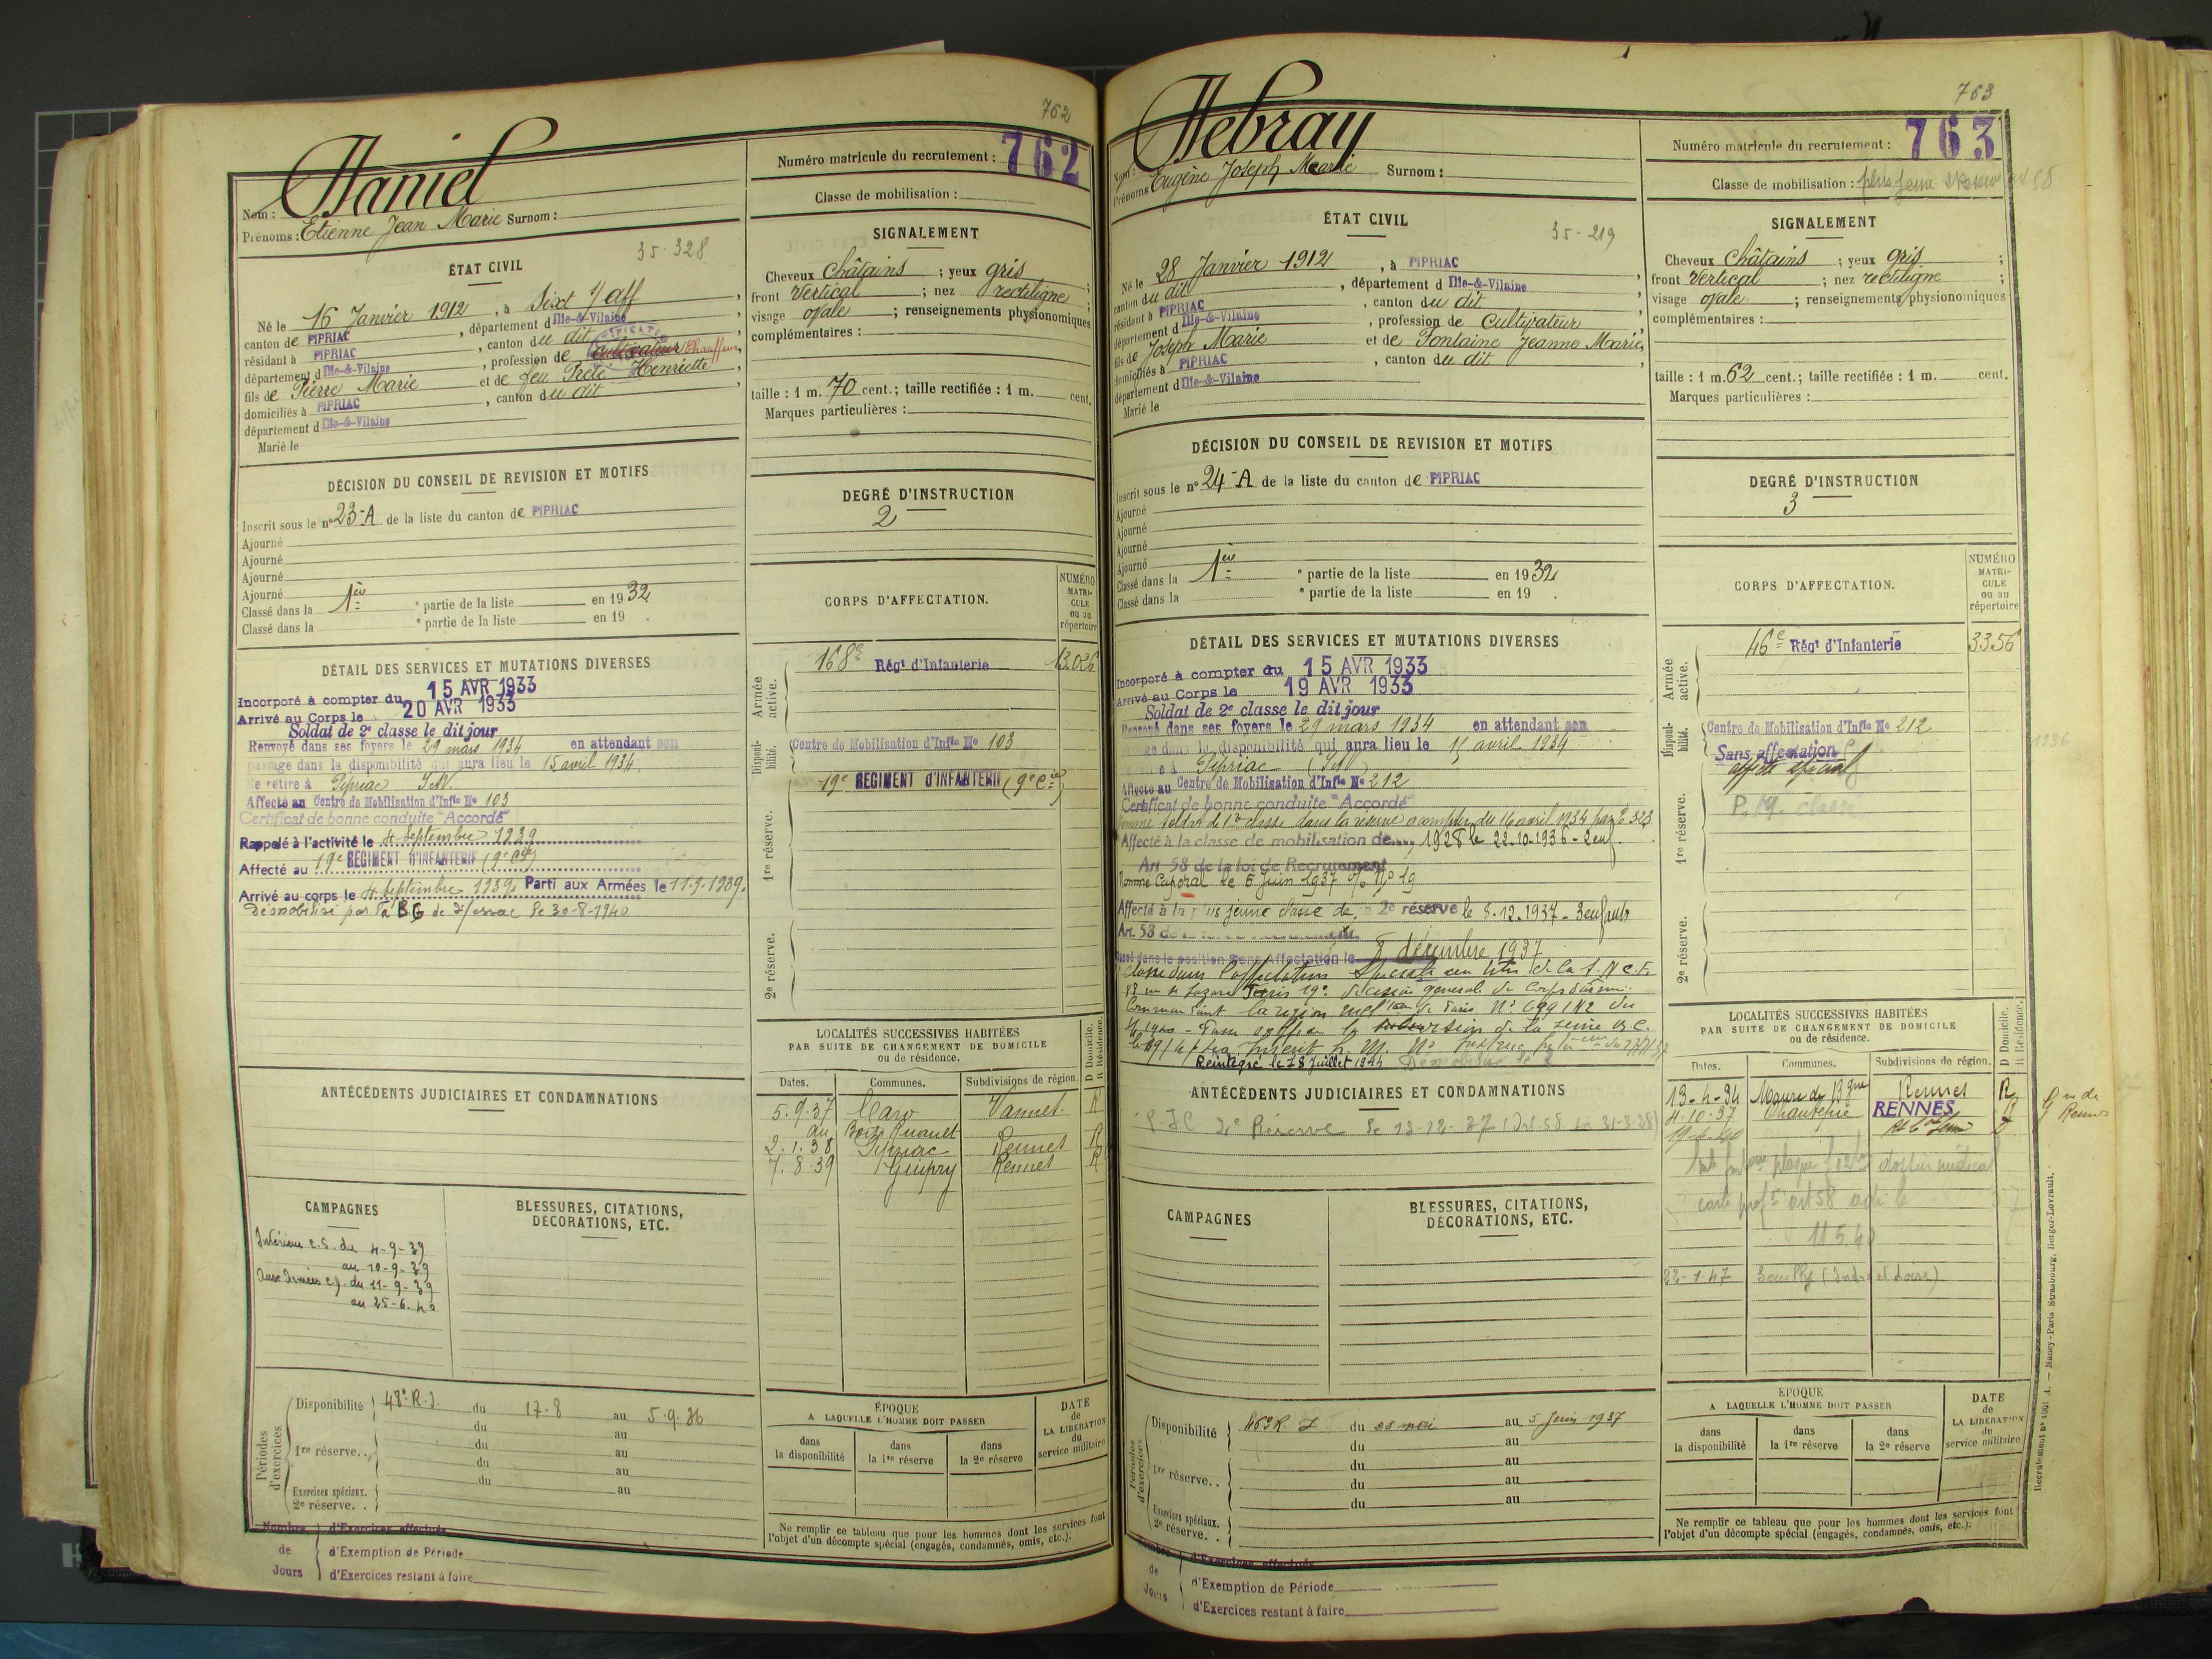 762
Numéro matricule du recrutement : 762
Classe de mobilisation :
Nom : Haniel
Prénoms : Etienne Jean Marie Surnom :
ÉTAT CIVIL
35-328
Né le 16 Janvier 1912, à Sixt s/ aff,
canton de PIPRIAC, département d Ille-&-Vilaine
résidant à PIPRIAC, canton du dit
département d Ille-&-Vilaine, profession de cultivateur Chauffeur,
fils de Pierre Marie et de feu Henriette
domiciliés à PIPRIAC, canton du dit,
département d Ille-&-Vilaine
Marié le
SIGNALEMENT
Cheveux Châtains ; yeux gris ;
front Vertical ; nez rectiligne
visage ovale ; renseignements physionomiques
complémentaires :
taille : 1 m. 70 cent. ; taille rectifiée : 1 m. cent.
Marques particulières :
DÉCISION DU CONSEIL DE REVISION ET MOTIFS
Inscrit sous le n° 23-A de la liste du canton de PIPRIAC
Ajourné
Ajourné
Ajourné
Ajourné
Classé dans la 1ère e partie de la liste en 1932
Classé dans la e partie de la liste en 19 .
DEGRÉ D'INSTRUCTION
2
DÉTAIL DES SERVICES ET MUTATIONS DIVERSES
Incorporé à compter du 15 AVR 1933
Arrivé au Corps le 20 AVR 1933
Soldat de 2e classe le dit jour
Renvoyé dans ses foyers le 29 mars 1934 en attendant son
passage dans la disponibilité qui aura lieu le 15 avril 1934
Se retire à Pipriac I&V.
Affecté au Centre de Mobilisation d'Infie No 103
Certificat de bonne conduite "Accordé"
Rappelé à l'activité le 4 Septembre 1939
Affecté au 19e RÉGIMENT D'INFANTERIE (9e Cie)
Arrivé au corps le 4 Septembre 1939. Parti aux Armées le 11.9.1939.
Démobilisé par le 30-8-1940
CORPS D'AFFECTATION.
NUMÉRO MATRI-CULE ou au répertoire
Armée active.
168e Régt d'Infanterie 13.026
Disponi-bilité.
Centre de Mobilisation d'Infie No 103
19e RÉGIMENT D'INFANTERIE (9e Cie)
1re réserve.
2e réserve.
LOCALITÉS SUCCESSIVES HABITÉES
PAR SUITE DE CHANGEMENT DE DOMICILE
ou de résidence.
D Domicile. R Résidence.
Dates. Communes. Subdivisions de région.
5.9.37 Caro Vannes R
au
2.1.38 Pipriac Rennes R
7.8.39 Guipry Rennes R
ANTÉCÉDENTS JUDICIAIRES ET CONDAMNATIONS
CAMPAGNES
Intérieur c.s. du 4-9-39
au 10-9-39
Aux Armées c.d. du 11-9-39
au 25-6-40
BLESSURES, CITATIONS,
DÉCORATIONS, ETC.
Périodes d'exercices
Disponibilité 48e R.I. du 17.8 au 5.9.36
du au
1re réserve.. du au
du au
du au
Exercices spéciaux.
2e réserve. .
ÉPOQUE
A LAQUELLE L'HOMME DOIT PASSER
dans la disponibilité
dans la 1re réserve
dans la 2e réserve
DATE de LA LIBÉRATION du service militaire
Ne remplir ce tableau que pour les hommes dont les services font
l'objet d'un décompte spécial (engagés, condamnés, omis, etc.).
Nombre de Jours
d'Exercices effectués
d'Exemption de Période
d'Exercices restant à faire
763
Numéro matricule du recrutement : 763
Classe de mobilisation : plus jeune
Nom : Hebray
Prénoms Eugène Joseph Marie Surnom :
ÉTAT CIVIL
35-219
Né le 28 Janvier 1912, à PIPRIAC,
canton du dit, département d Ille-&-Vilaine
résidant à PIPRIAC, canton du dit
département d Ille-&-Vilaine, profession de Cultivateur,
fils de Joseph Marie et de Fontaine Jeanne Marie,
domiciliés à PIPRIAC, canton du dit,
département d Ille-&-Vilaine
Marié le
SIGNALEMENT
Cheveux Châtains ; yeux gris ;
front Vertical ; nez rectiligne ;
visage ovale ; renseignements physionomiques
complémentaires :
taille : 1 m. 62 cent. ; taille rectifiée : 1 m. cent.
Marques particulières :
DÉCISION DU CONSEIL DE REVISION ET MOTIFS
Inscrit sous le n° 24-A de la liste du canton de PIPRIAC
Ajourné
Ajourné
Ajourné
Ajourné
Classé dans la 1ère e partie de la liste en 1932
Classé dans la e partie de la liste en 19 .
DEGRÉ D'INSTRUCTION
3
DÉTAIL DES SERVICES ET MUTATIONS DIVERSES
Incorporé à compter du 15 AVR 1933
Arrivé au Corps le 19 AVR 1933
Soldat de 2e classe le dit jour
Renvoyé dans ses foyers le 29 mars 1934 en attendant son
passage dans la disponibilité qui aura lieu le 15 avril 1934
Pipriac (I&V)
Affecté au Centre de Mobilisation d'Infie No 212
Certificat de bonne conduite "Accordé"
Nommé soldat de 1re classe dans la réserve à compter du 16 avril 1934
Affecté à la classe de mobilisation de 1928 le 22.10.1936 - 2 enf.
Art 58 de la loi de Recrutement
Nommé Caporal le 5 Juin 1937 No 19
Affecté à la plus jeune classe de la 2e réserve le 8.12.1937 - 3 enfants
Art. 58
Passé dans la position Sans Affectation le 8 décembre 1937
Classé dans l'affectation Spéciale au titre de la S.N.C.F.
Réintégré le 28 Juillet 1944
CORPS D'AFFECTATION.
NUMÉRO MATRI-CULE ou au répertoire
Armée active.
46e Régt d'Infanterie 3356
Disponi-bilité.
Centre de Mobilisation d'Infie No 212
Sans affectation
affecté spécial
1re réserve.
2e réserve.
LOCALITÉS SUCCESSIVES HABITÉES
PAR SUITE DE CHANGEMENT DE DOMICILE
ou de résidence.
D Domicile. R Résidence.
Dates. Communes. Subdivisions de région.
13-4-34 Rennes R
4-10-37 Chantepie RENNES R
19-4-40
dossier médical
11 5 40
22-1-47 (Indre et Loire)
ANTÉCÉDENTS JUDICIAIRES ET CONDAMNATIONS
P.J.C 2e Réserve le 13-12-37
CAMPAGNES
BLESSURES, CITATIONS,
DÉCORATIONS, ETC.
Périodes d'exercices
Disponibilité 46e R.I. du mai au 5 Juin 1937
du au
1re réserve. . du au
du au
du au
Exercices spéciaux.
2e réserve. .
ÉPOQUE
A LAQUELLE L'HOMME DOIT PASSER
dans la disponibilité
dans la 1re réserve
dans la 2e réserve
DATE de LA LIBÉRATION du service militaire
Ne remplir ce tableau que pour les hommes dont les services font
l'objet d'un décompte spécial (engagés, condamnés, omis, etc.).
Nombre de Jours
d'Exercices effectués
d'Exemption de Période
d'Exercices restant à faire
Nancy-Paris-Strasbourg, Berger-Levrault.